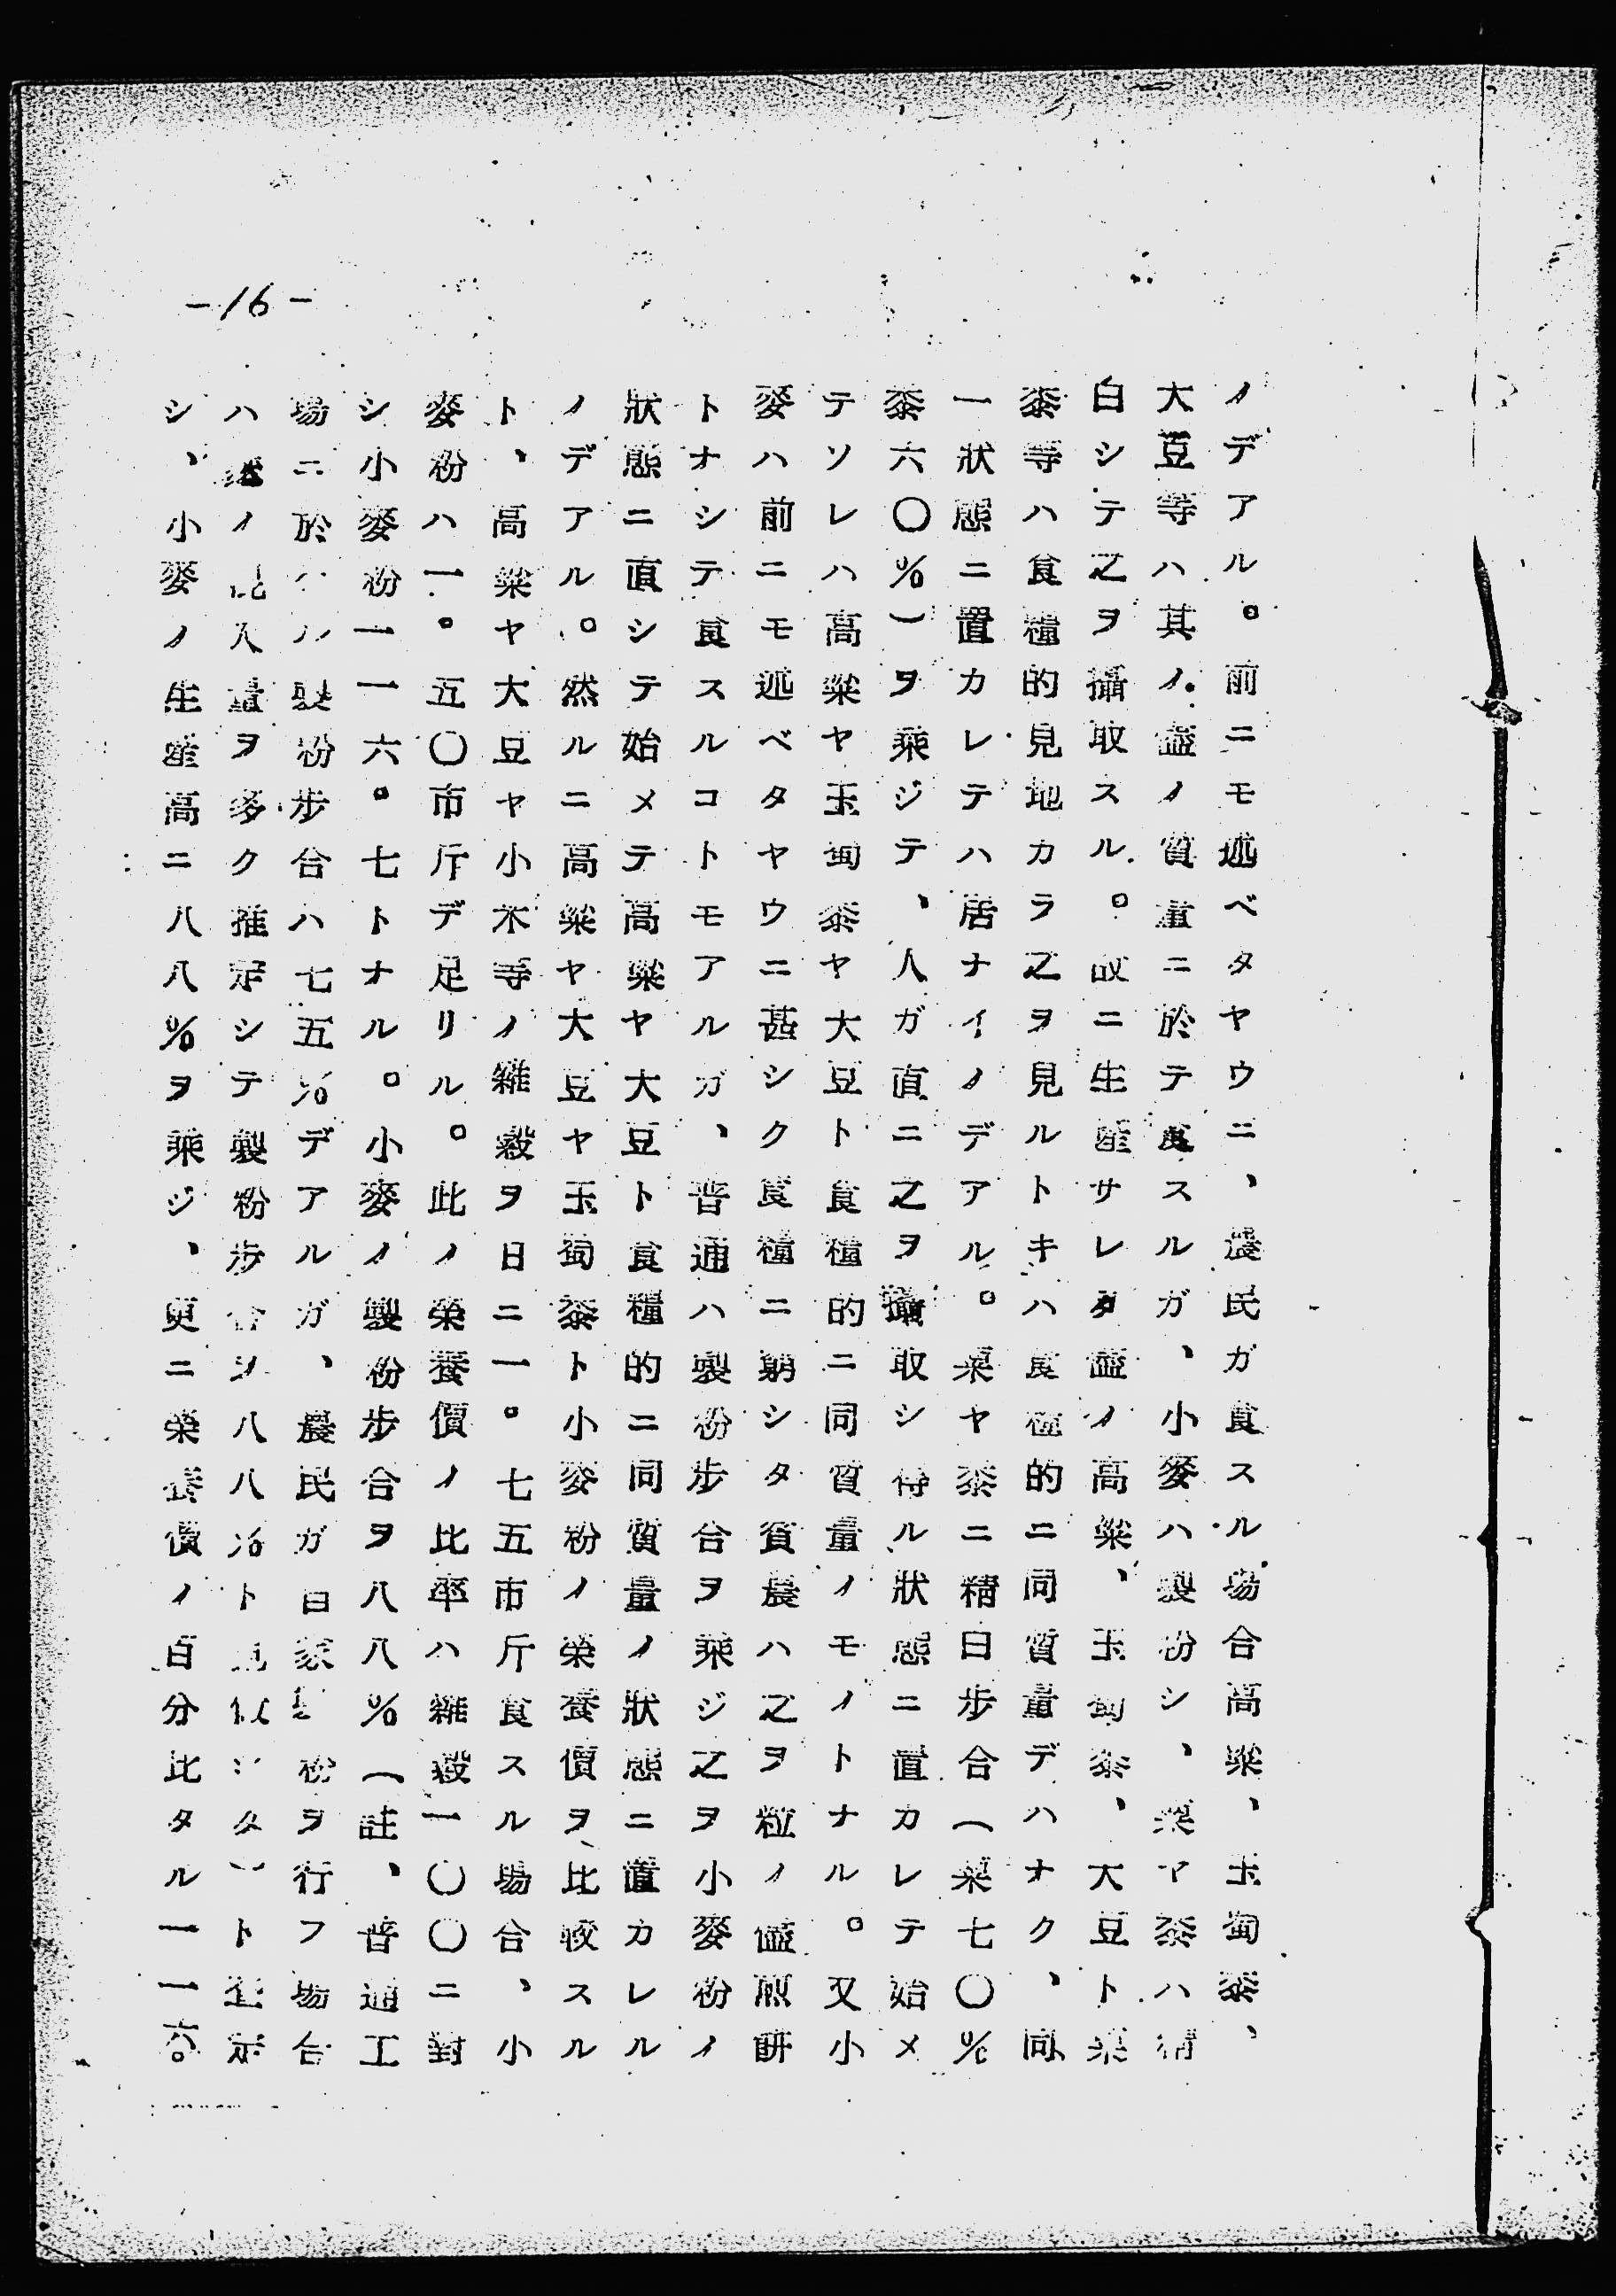 -16-
ノデアル。前ニモ述ベタヤウニ、農民ガ食スル場合高粱、玉蜀黍、
大豆等ハ其ノ儘ノ質量ニ於テ食スルガ、小麥ハ製粉シ、粟ヤ黍ハ精
白シテ之ヲ攝取スル。故ニ生産サレタ儘ノ高粱、玉蜀黍、大豆ト粟
黍等ハ食糧的見地カラ之ヲ見ルトキハ食糧的ニ同質量デハナク、同
一狀態ニ置カレテハ居ナイノデアル。粟ヤ黍ニ精白歩合(粟七〇%
黍六〇%)ヲ乘ジテ、人ガ直ニ之ヲ攝取シ得ル狀態ニ置カレテ始メ
テソレハ高粱ヤ玉蜀黍ヤ大豆ト食糧的ニ同質量ノモノトナル。又小
麥ハ前ニモ述ベタヤウニ甚シク食糧ニ窮シタ貧農ハ之ヲ粒ノ儘煎餅
トオシテ食スルコトモアルガ、普通ハ製粉歩合ヲ乘ジ之ヲ小麥粉ノ
狀態ニ直シテ始メテ高粱ヤ大豆ト食糧的ニ同質量ノ狀態ニ置カレル
ノデアル。然ルニ高粱ヤ大豆ヤ玉蜀黍ト小麥粉ノ榮養價ヲ比較スル
ト、高粱ヤ大豆ヤ小米等ノ雜穀ヲ日ニ一。七五市斤食スル場合、小
麥粉ハ一。五〇市斤デ足リル。此ノ榮養價ノ比率ハ雜穀一〇〇ニ對
シ小麥粉一一六。七トナル。小麥ノ製粉歩合ヲ八八%(註、普通工
場ニ於ケル製粉歩合ハ七五%デアルガ、農民ガ自家製粉ヲ行フ場合
ハ ノ混入量ヲ多ク推定シテ製粉歩合ヲ八八%ト シタ)ト 定
シ、小麥ノ生産高ニ八八%ヲ乘ジ、更ニ榮養價ノ百分比タル一一六。